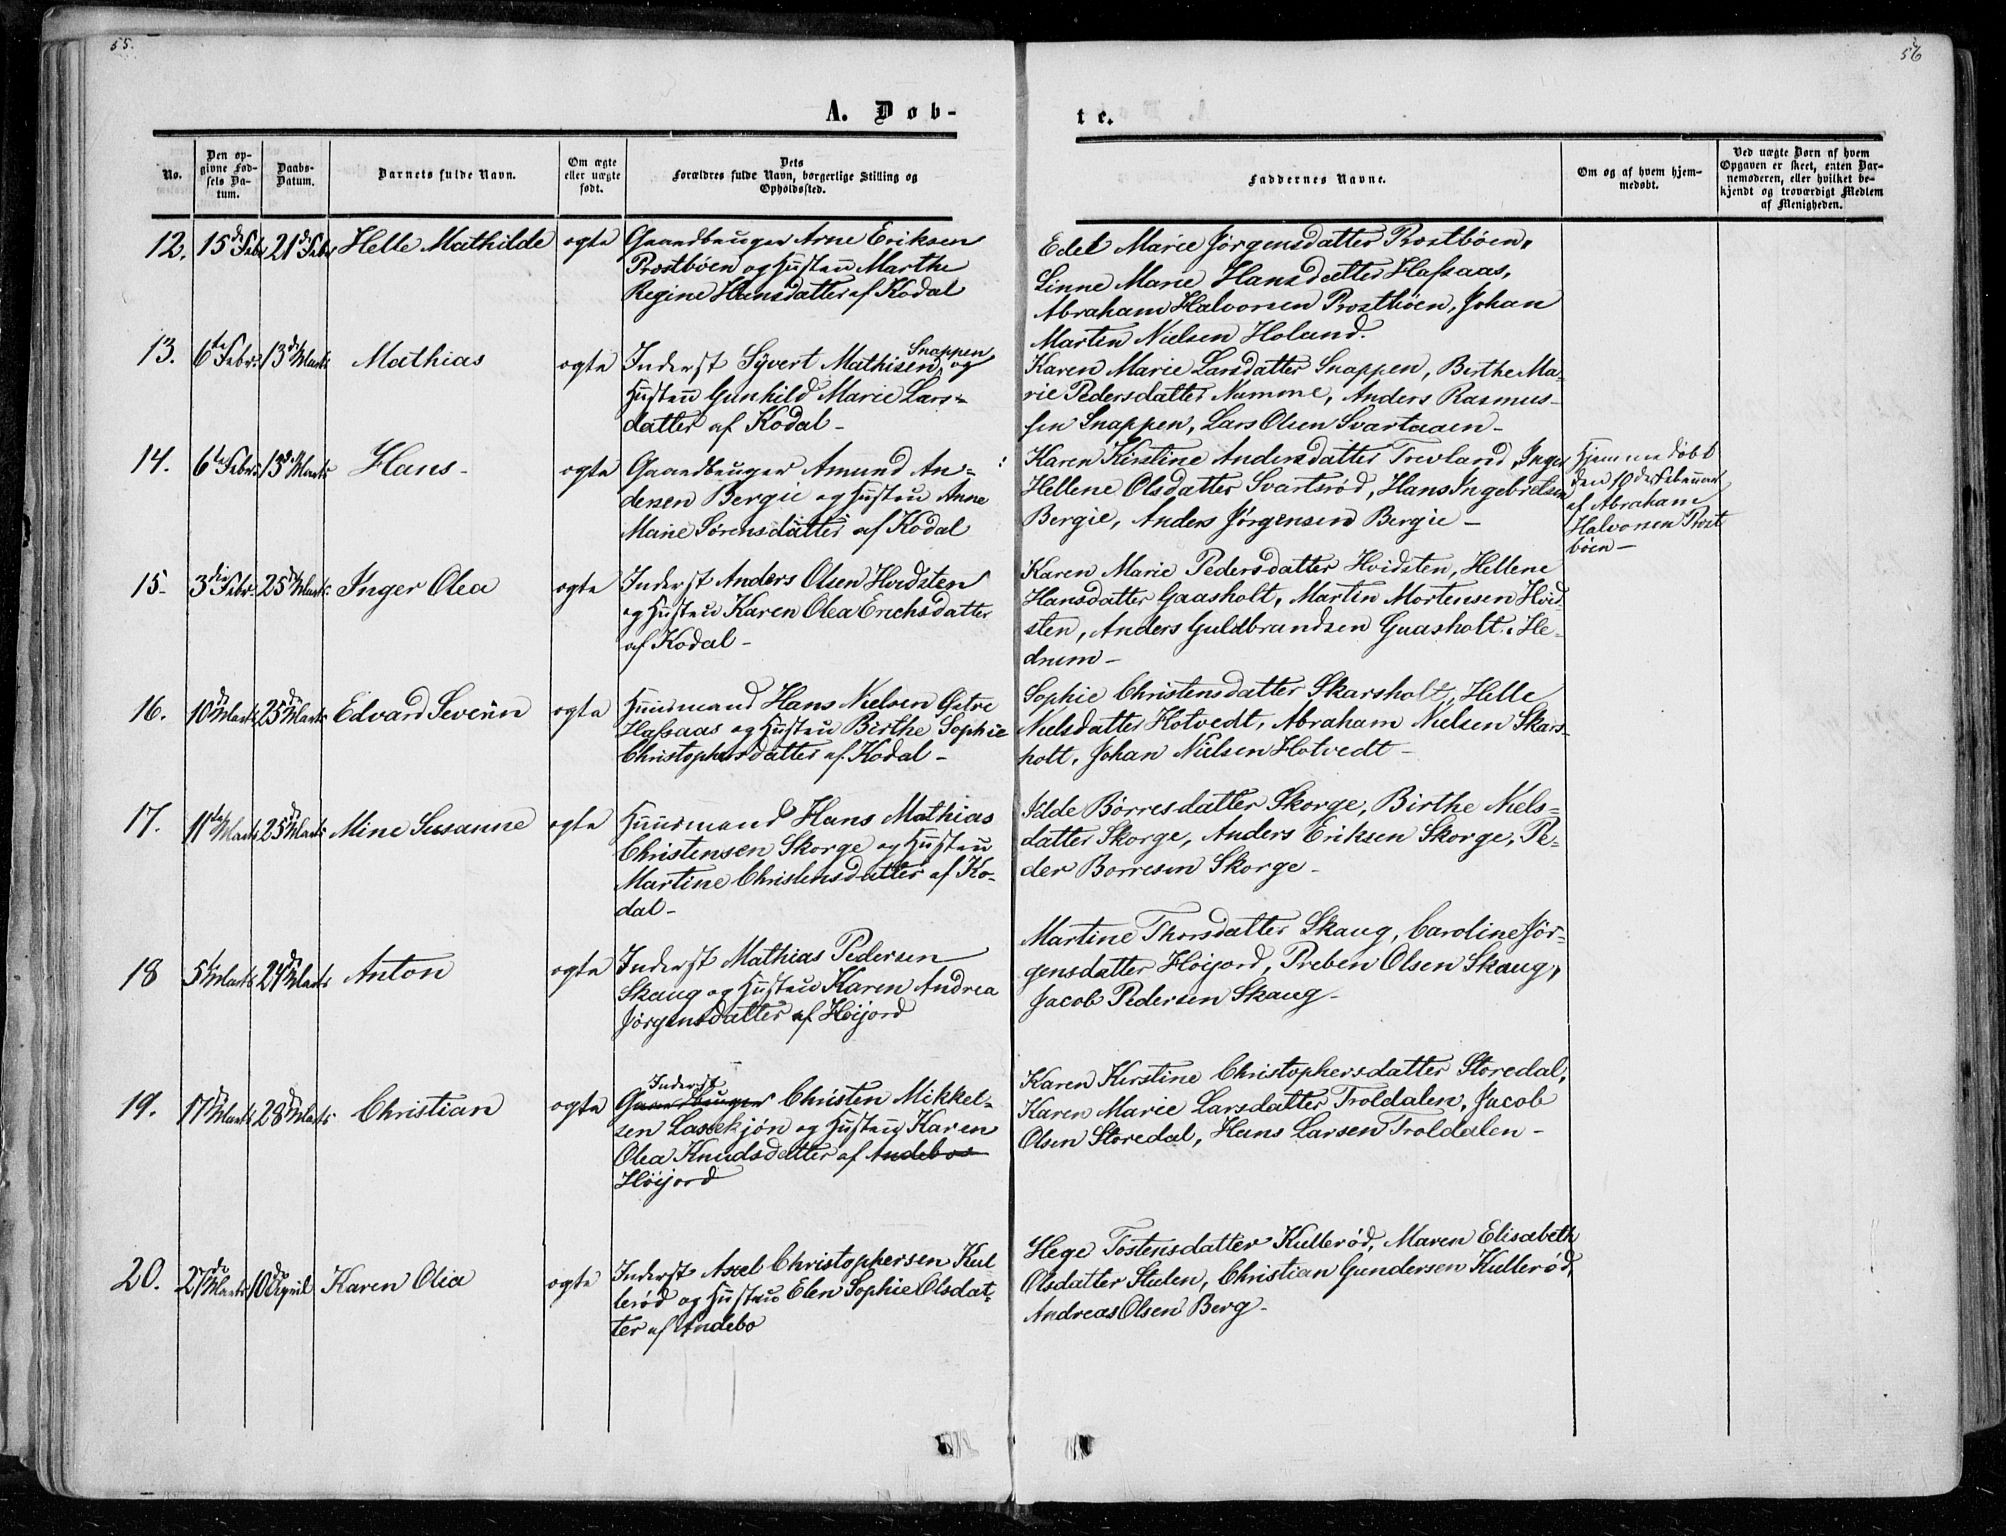 55.
56
A. Døb-
te.
No.
Den op-
givne Fød-
sels Da-
tum.
Daabs-
Datum.
Barnets fulde Navn.
Om ægte
eller uægte
født.
Dets
Forældres fulde Navn, borgerlige Stilling og
Opholdssted.
Faddernes Navne.
Om og af hvem hjem-
medøbt.
Ved uægte Børn af hvem
Opgaven er skeet, enten Bar-
nemoderen, eller hvilket be-
kjendt og troværdigt Medlem
af Menigheden.
12. 15de Febr 21de Febr Helle Mathilde ægte
Gaardbruger Arne Eriksen
Prestbøen og Hustru Marthe
Regine Hansdatter af Kodal
Edel Marie Jørgensdatter Prostbøen,
Linne Marie Hansdatter Hafsaas,
Abraham Halvorsen Prostbøen, Johan
Martin Nielsen Holand.
13. 6te Febr. 13de Marts Mathias ægte
Inderst Syvert Mathisen Snappen og
Hustru Gunhild Marie Lars-
datter af Kodal -
Karen Marie Larsdatter Snappen, Birthe Ma-
rie Pedersdatter Namme, Anders Rasmus-
sen Snappen, Lars Olsen Svartaaen -
14. 6te Febr. 13de Marts Hans - ægte
Gaardbruger Amund An-
dersen Bergie og Hustru Anne
Marie Sørensdatter af Kodal
Karen Kirstine Andersdatter Trevland, Inger
Hellene Olsdatter Svartsrød, Hans Ingebretsen
Bergie, Anders Jørgensen Bergie -
Hjemmedøbt
den 10de Februar
af Abraham
Halvorsen Prost
bøen -
15- 3die Febr. 25de Marts Inger Olea ægte
Inderst Anders Olsen Hvidsten
og Hustru Karen Olea Erichsdatter
af Kodal -
Karen Marie Pedersdatter Hvidsten, Hellene
Hansdatter Gaasholt, Martin Mortensen Hvid-
sten, Anders Guldbrandsen Gaasholt. He-
drum -
16. 10de Marts 25de Marts Edvard Severin ægte
Huusmand Hans Nielsen Østre
Hafsaas og Hustru Birthe Sophie
Christophersdatter af Kodal -
Sophie Christensdatter Skarsholt, Helle
Nielsdatter Hotvedt, Abraham Nielsen Skars-
holt, Johan Nielsen Hotvedt -
17. 11te Marts 25de Marts Mine Susanne ægte
Huusmand Hans Mathias
Christensen Skorge og Hustru
Martine Christensdatter af Ko-
dal -
Ilde Børresdatter Skorge, Birthe Niels-
datter Skorge, Anders Eriksen Skorge, Pe-
der Borresen Skorge -
18 5te Marts 24de Marts Anton ægte
Inderst Mathias Pedersen
Skaug og Hustru Karen Andrea
Jørgensdatter af Høijord
Martine Thorsdatter Skaug, Caroline Jør-
gensdatter Høijord, Preben Olsen Skaug,
Jacob Pedersen Skaug -
19. 17de Marts 28de Marts Christian ægte
Inderst
Gaardbruger Christen Mikkel-
sen Lassekjøn og Hustru Karen
Olea Knudsdatter af Andebo
Høijord
Karen Kirstine Christophersdatter Storedal,
Karen Marie Larsdatter Troldalen, Jacob
Olsen Storedal, Hans Larsen Troldalen -
20. 27de Marts 10de April Karen Olia ægte
Inderst Axel Christophersen Kul-
lerød og Hustru Elen Sophie Olsdat-
ter af Andebo
Hege Tostensdatter Kullerød, Maren Elisabeth
Olsdatter Stulen, Christian Gundersen Kullerød,
Andreas Olsen Berg -